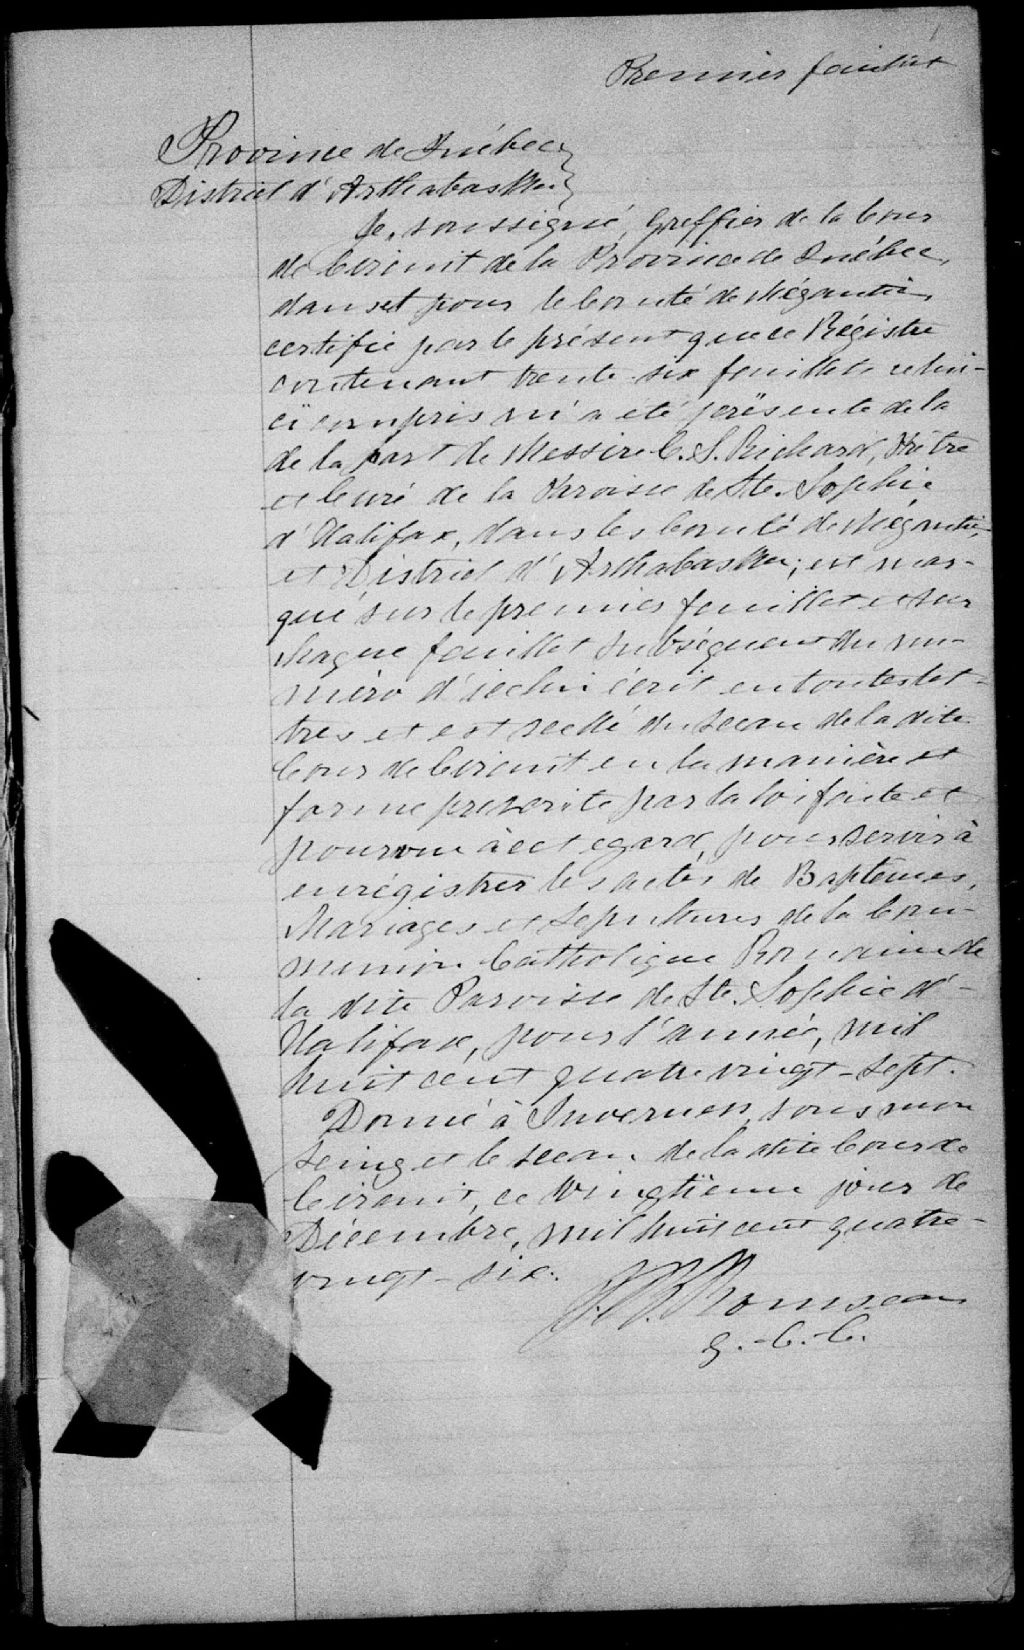 Premier feuillet
Province de Québec
District d'Arthabaska
Je, soussigné, Greffier de la Cour
de Circuit de la Province de Québec,
dans et pour le Comté de Mégantic,
certifie par le présent que ce Régistre
contenant trente-six feuillets celui-
ci compris m'a été présenté de la
de la part de Messire C. S. Richard, Prêtre
et Curé de la Paroisse de Ste. Sophie
d'Halifax, dans les Comté de Mégantic,
et District d'Arthabaska; est mar-
qué sur le premier feuillet et sur
chaque feuillet subséquent du nu-
méro d'icelui écrit en toutes let-
tres et est scellé du sceau de la dite
Cour de Circuit en la manière et
forme prescrite par la loi faite et
pourvue à cet egard, pour servir à
enrégistrer les actes de Baptêmes,
Mariages et Sepultures de la Com-
munion Catholique Romaine de
la dite Paroisse de Ste. Sophie d'-
Halifax, pour l'année, mil
huit cent quatre vingt-sept.
Donné à Inverness, sous mon
seing et le sceau de la dite Cour de
Circuit, ce vingtième jour de
Décembre, mil huit cent quatre-
vingt-six.
Rousseau
G.-C.-C.